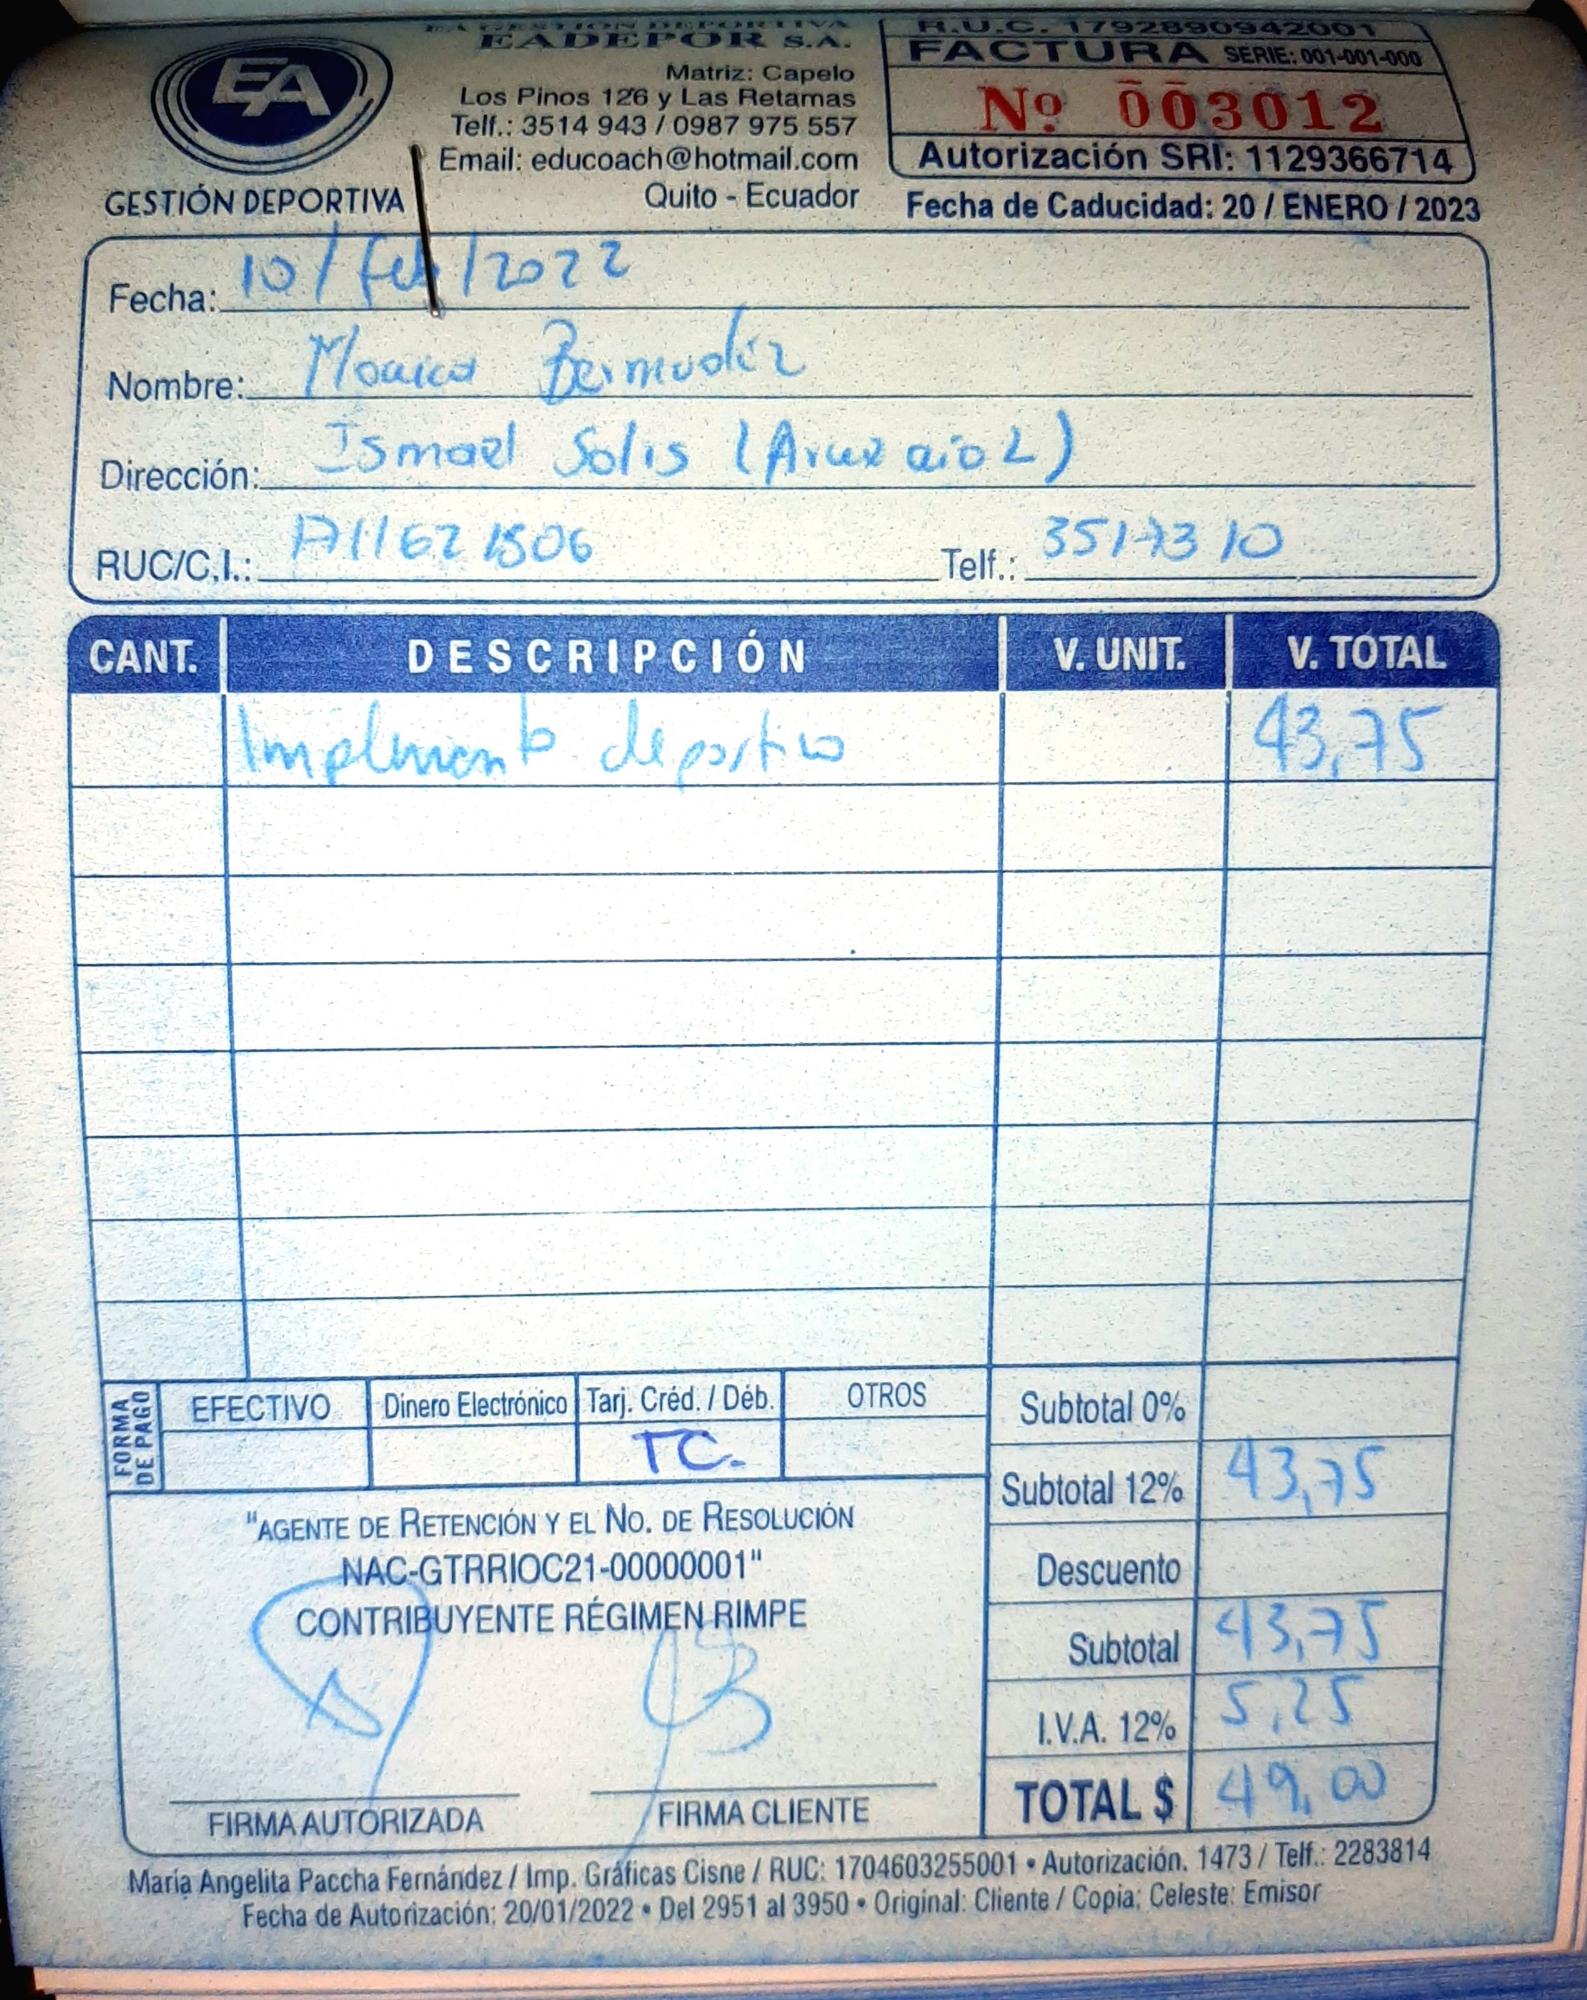 EA GESTIÓN DEPORTIVA
EADEPOR S.A.
Matriz: Capelo
Los Pinos 126 y Las Retamas
Telf.: 3514 943 / 0987 975 557
Email: educoach@hotmail.com
Quito - Ecuador
EA
GESTIÓN DEPORTIVA
R.U.C. 1792890942001
FACTURA SERIE: 001-001-000
Nº 003012
Autorización SRI: 1129366714
Fecha de Caducidad: 20 / ENERO / 2023
Fecha: 10 / Feb / 2022
Nombre: Monica Bermudez
Dirección: Ismael Solis
RUC/C.I.: Telf.: 3517310
CANT. DESCRIPCIÓN V. UNIT. V. TOTAL
Implemento deportivo 43,75
FORMA DE PAGO
EFECTIVO Dinero Electrónico Tarj. Créd. / Déb. OTROS
TC.
Subtotal 0%
Subtotal 12% 43,75
Descuento
Subtotal 43,75
I.V.A. 12% 5,25
TOTAL $ 49,00
"AGENTE DE RETENCIÓN Y EL NO. DE RESOLUCIÓN
NAC-GTRRIOC21-00000001"
CONTRIBUYENTE RÉGIMEN RIMPE
FIRMA AUTORIZADA FIRMA CLIENTE
María Angelita Paccha Fernández / Imp. Gráficas Cisne / RUC: 1704603255001 • Autorización. 1473 / Telf.: 2283814
Fecha de Autorización: 20/01/2022 • Del 2951 al 3950 • Original: Cliente / Copia: Celeste: Emisor